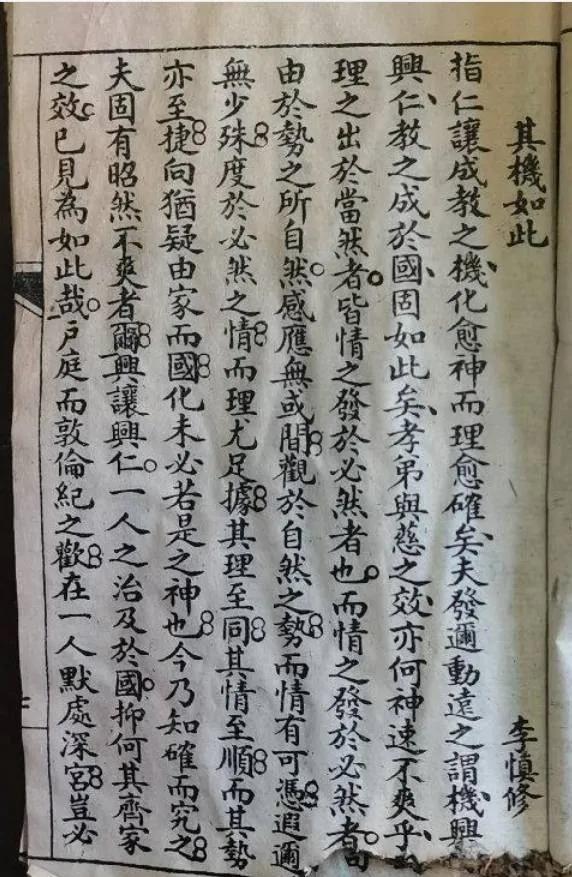 其機如此
李慎修
指仁讓成教之機化愈神而理愈確矣夫發邇動遠之謂機興
興仁教之成於國固如此矣孝弟與慈之效亦何神速不爽乎
理之出於當然者皆情之發於必然者也而情之發於必然者
由於勢之所自然感應無或間觀於自然之勢而情有可憑遐邇
無少殊度於必然之情而理尤足據其理至同其情至順而其勢
亦至捷向猶疑由家而國化未必若是之神也今乃知確而究之
夫固有昭然不爽者爾興讓興仁一人之治及於國抑何其齊家
之效已見為如此哉戶庭而敦倫紀之歡在一人默處深宮豈必